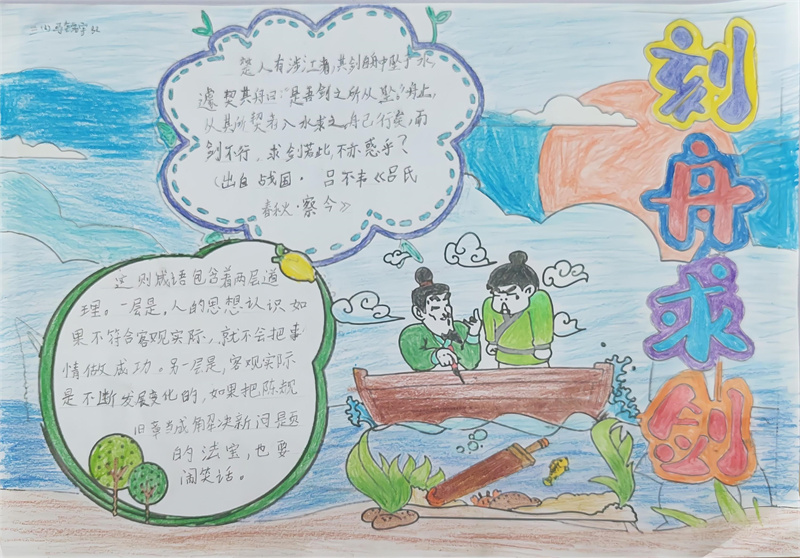 刻舟求剑
楚人有涉江者,其剑自舟中坠于水,
遽契其舟曰:"是吾剑之所从坠。"舟止,
从其所契者入水求之。舟已行矣,而
剑不行,求剑若此,不亦惑乎?
(出自战国·吕不韦《吕氏
春秋·察今》
这则成语包含着两层道
理。一层是,人的思想认识如
果不符合客观实际,就不会把事
情做成功。另一层是,客观实际
是不断发展变化的,如果把陈规
旧章当成解决新问题
的法宝,也要
闹笑话。